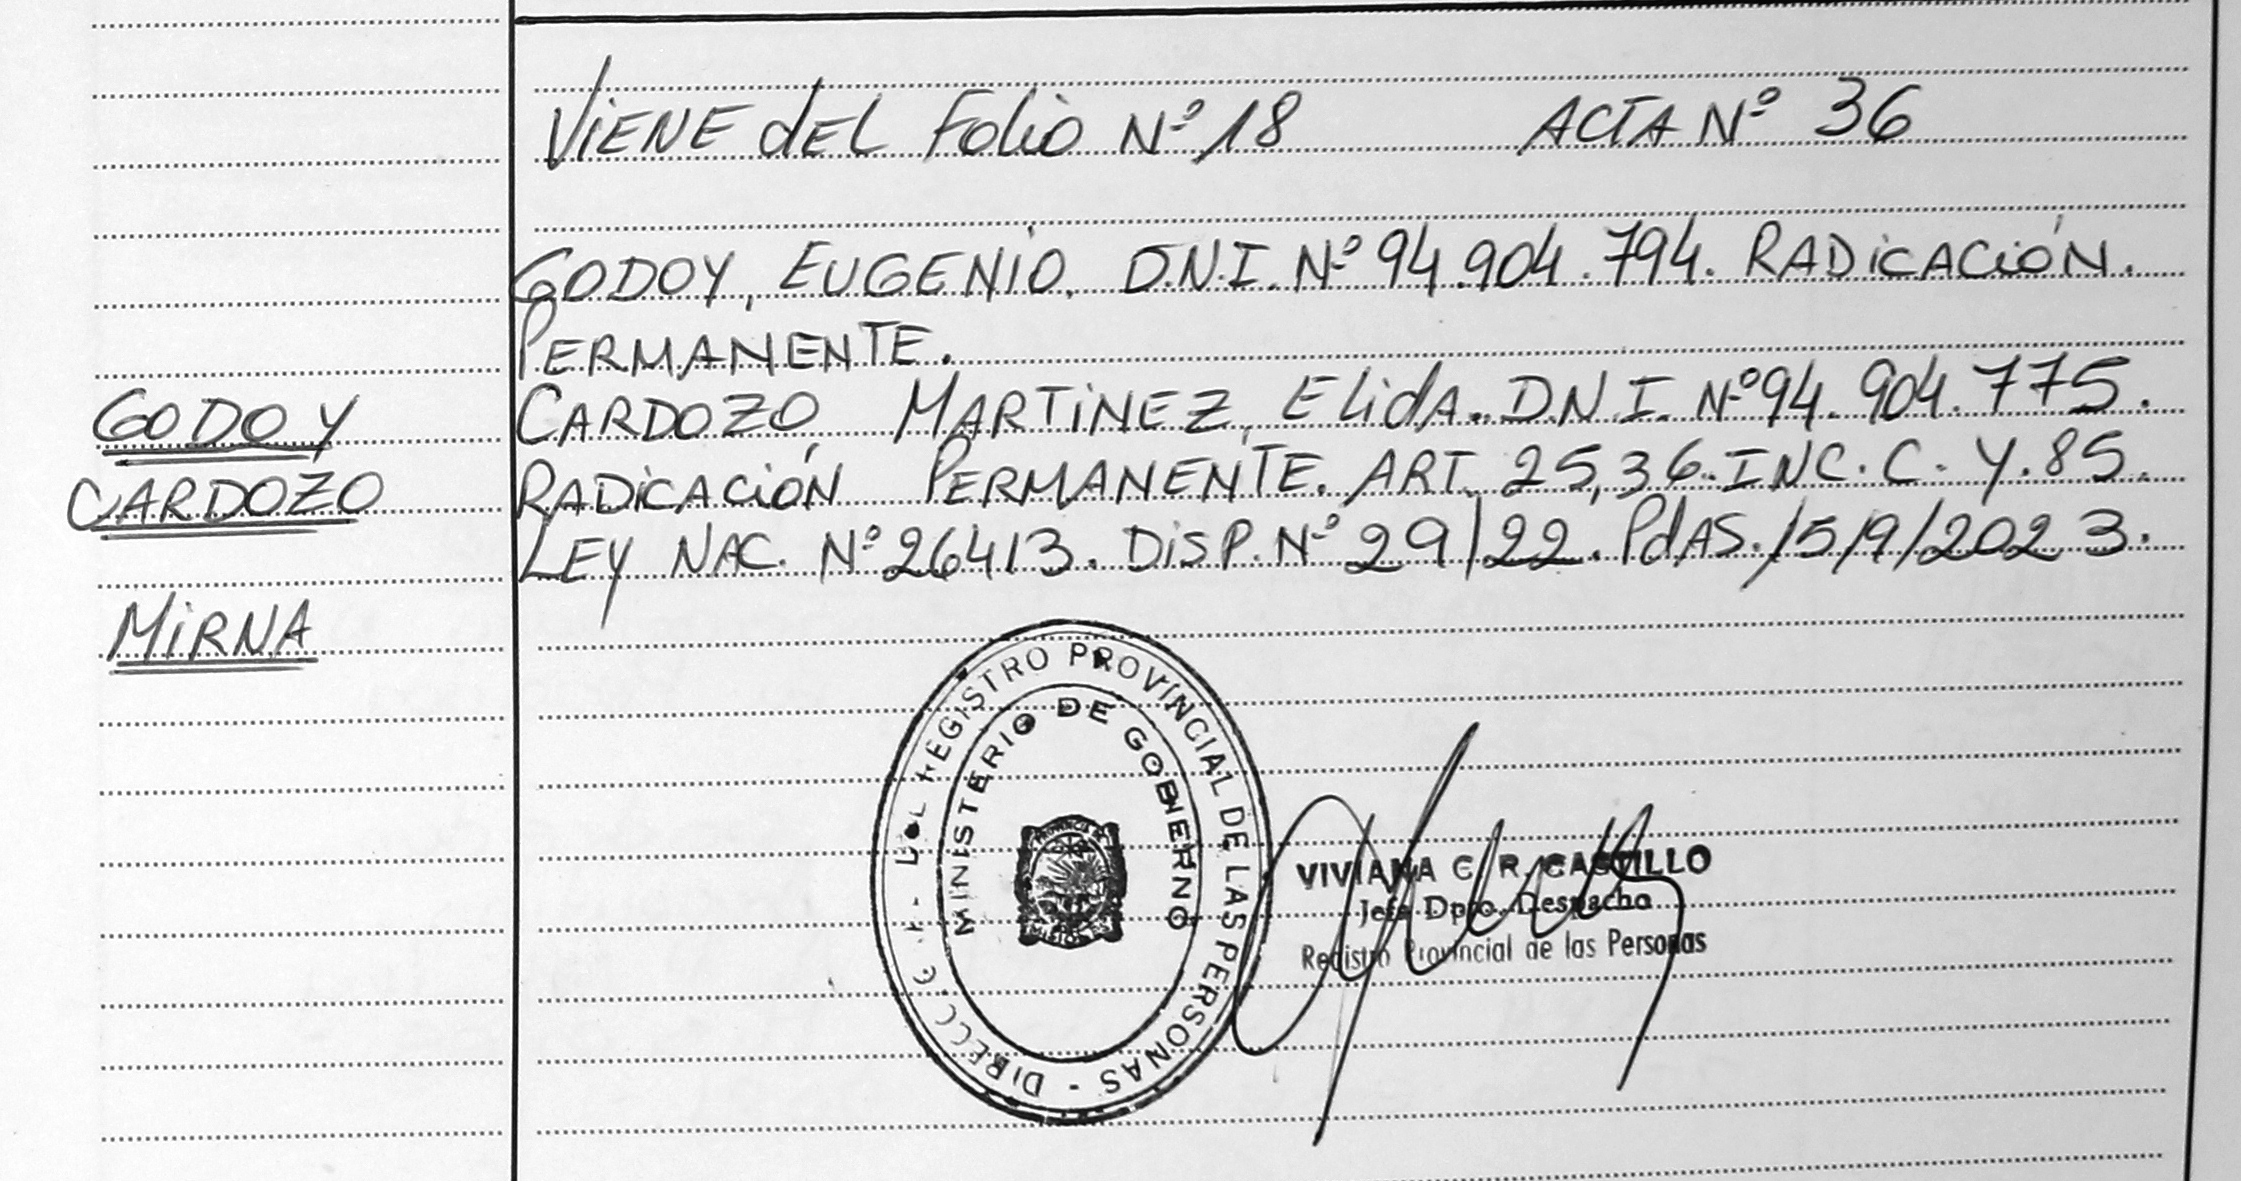 ViENE dEL Folio Nº 18 ACTA Nº 36
GODOY, EUGENIO. D.N.I. Nº 94.904.794. RADiCACióN.
PERMANENTE.
CARDOZO MARTiNEZ, EliDA. D.N.I. Nº 94.904.775.
RADiCACióN PERMANENTE. ART. 25,36. INC. C. Y. 85.
LEY NAC. Nº 26413. DiSP. Nº 29/22. PdAS. 15/9/2023.
GODOY
CARDOZO
MiRNA
REGISTRO PROVINCIAL DE LAS PERSONAS -
MINISTERIO DE GOBIERNO
VIVIANA C. R. CASTILLO
Jefa Dpto. Despacho
Registro Provincial de las Personas